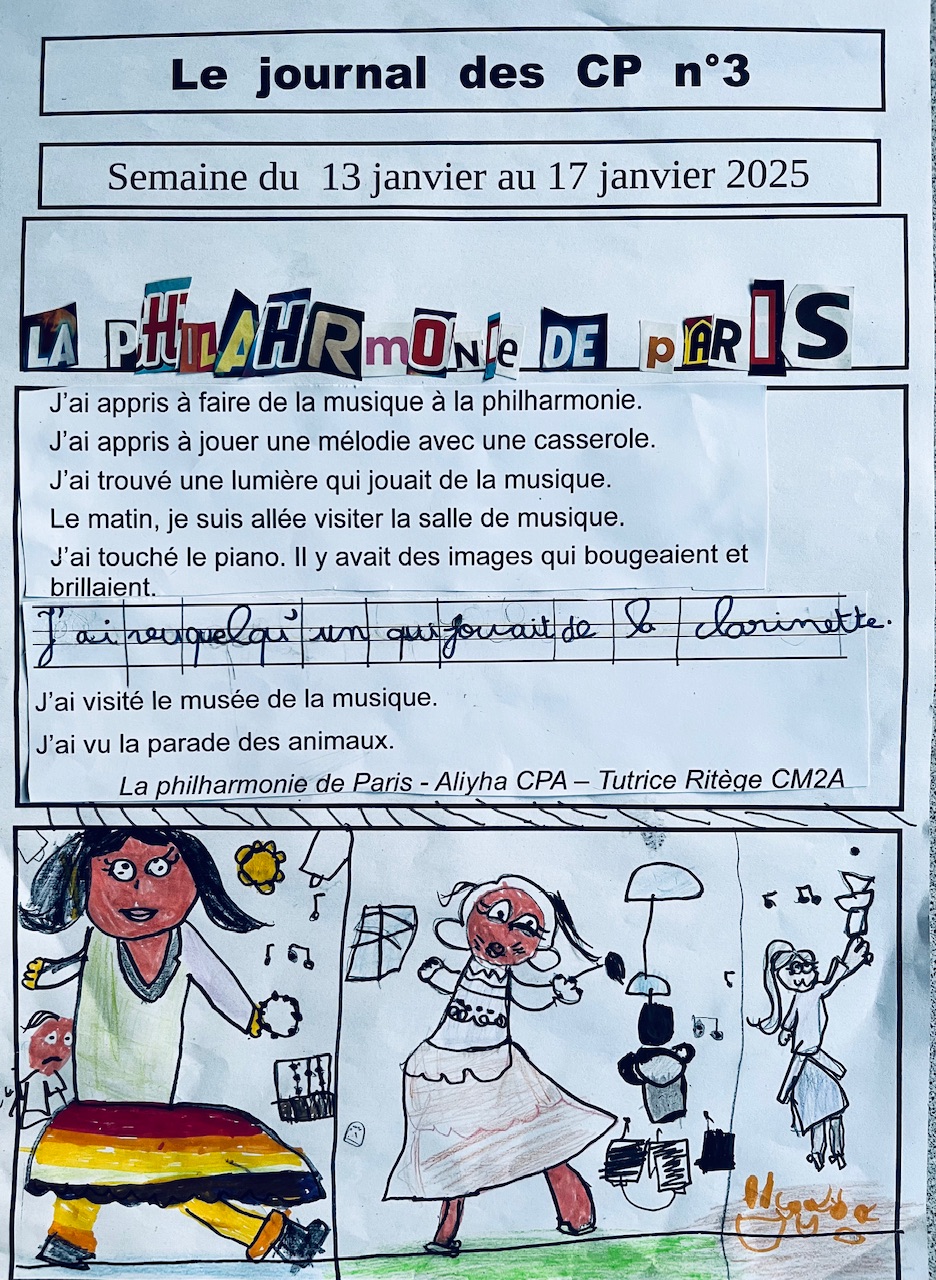 Le journal des CP n°3
Semaine du 13 janvier au 17 janvier 2025
LA PHILAHRmONIe DE pARIS
J'ai appris à faire de la musique à la philharmonie.
J'ai appris à jouer une mélodie avec une casserole.
J'ai trouvé une lumière qui jouait de la musique.
Le matin, je suis allée visiter la salle de musique.
J'ai touché le piano. Il y avait des images qui bougeaient et
brillaient.
J'ai vu quelqu'un qui jouait de la clarinette.
J'ai visité le musée de la musique.
J'ai vu la parade des animaux.
La philharmonie de Paris - Aliyha CPA – Tutrice Ritège CM2A